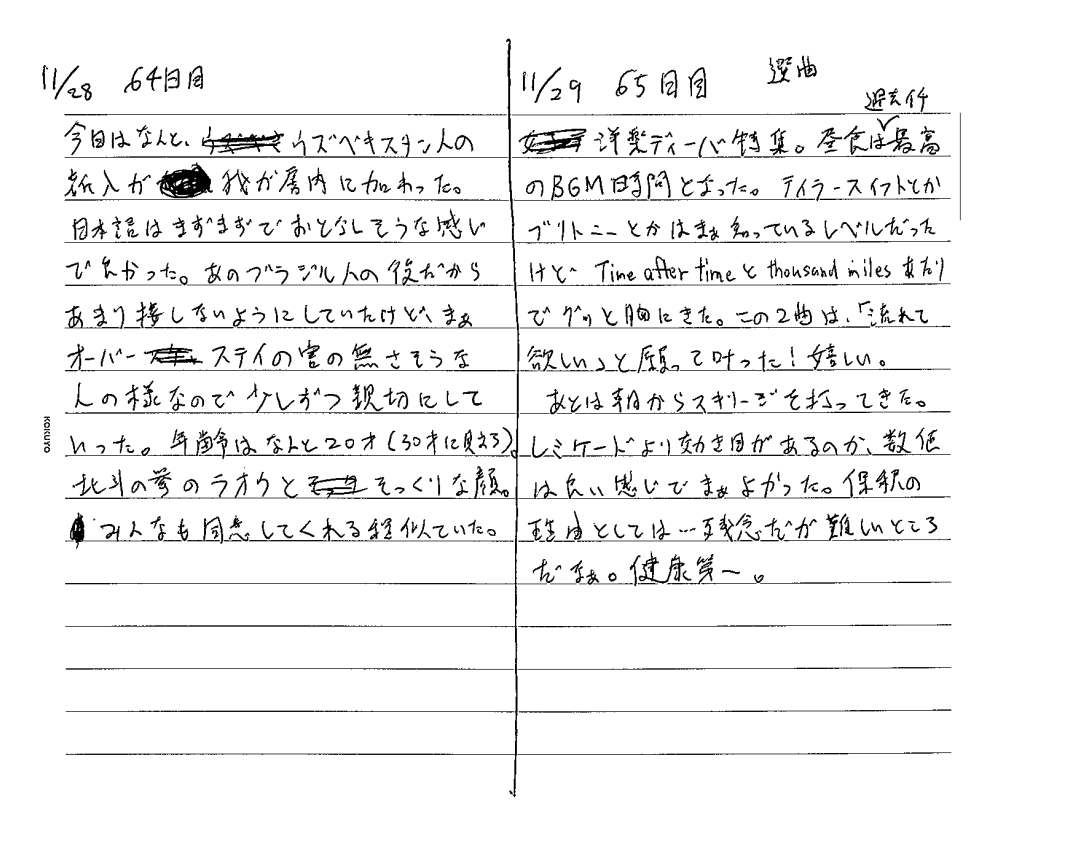 11/28 64日目
今日はなんと、ウズベキスタン人の
新入が我が房内に加わった。
日本語はまずまずでおとなしそうな感じ
で良かった。あのブラジル人の後だから
あまり接しないようにしていたけど、まぁ
オーバーステイの害の無さそうな
人の様なので少しずつ親切にして
いった。年齢はなんと20才(30才に見える)。
北斗の拳のラオウとそっくりな顔。
みんなも同意してくれる程似ていた。
KOKUYO
11/29 65日目 選曲
過去イチ
洋楽ディーバ特集。昼食は最高
のBGM時間となった。テイラースイフトとか
ブリトニーとかはまぁ知っているレベルだった
けど Time after time と thousand miles あたり
でグッと胸にきた。この2曲は、「流れて
欲しい」と願って叶った!嬉しい。
あとは朝からスキリージを打ってきた。
レミケードより効き目があるのか、数値
は良い感じでまぁよかった。保釈の
理由としては…残念だが難しいところ
だなぁ。健康第一。